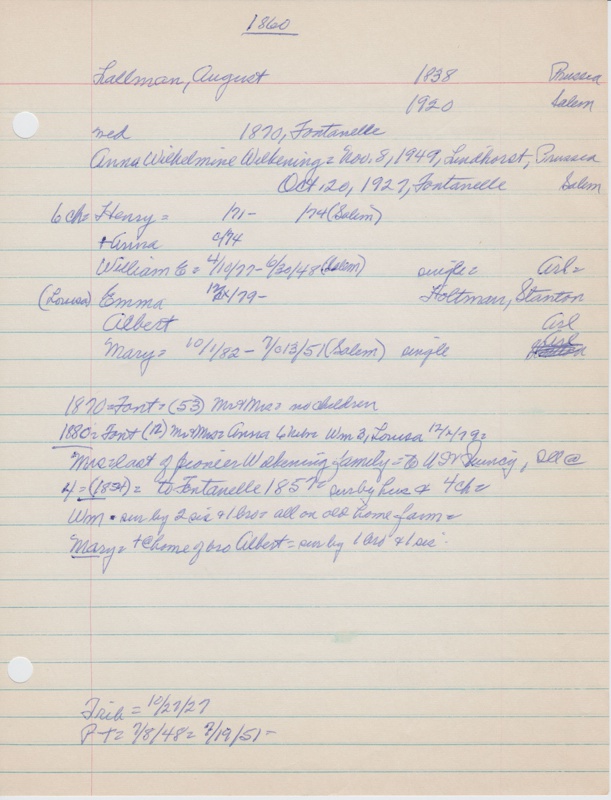 1860
Lallman, August 1838 Prussia
1920 Salem
med 1870, Fontanelle
Anna Wilhelmine Wilkening = Nov. 8, 1949, Lindhorst, Prussia
Oct. 20, 1927, Fontanelle Salem
6 ch = Henry = /71- /74 (Salem)
+ Anna 9/74
William E = 4/19/77 - 6/30/48 (Salem) single = Arl =
(Louisa) Emma 12/x/79 - Holtman, Stanton
Albert Arl
Mary = 10/1/82 - 7/013/51 (Salem) single Arl
1870 = Font = (53) Mr & Mrs = no children
1880 = Font (12) Mr & Mrs = Anna 6 Wm 3, Louisa 12/x/79 =
Mrs = last of pioneer Wilkening family = to US Quincy, Ill @
4 = (1854) = to Fontanelle 1857 = sur by hus & 4 ch =
Wm • sur by 2 sis & 1 bro = all on old home farm =
Mary = + @ home of bro Albert = sur by 1 bro & 1 sis
Trib = 10/27/27
P-T = 7/8/48 = 7/19/51 =